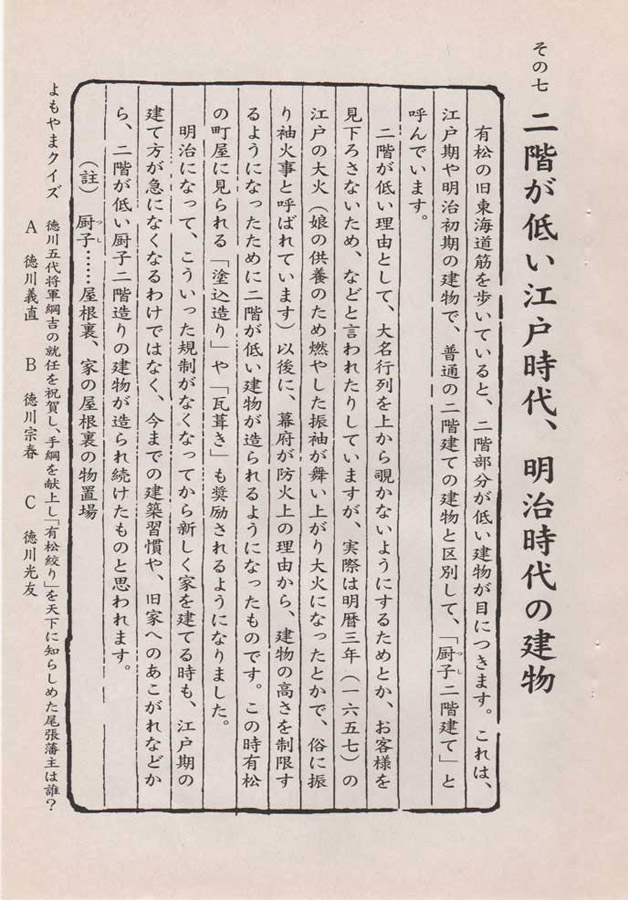 その七 二階が低い江戸時代、明治時代の建物
有松の旧東海道筋を歩いていると、二階部分が低い建物が目につきます。これは、
江戸期や明治初期の建物で、普通の二階建ての建物と区別して、「厨子二階建て」と
呼んでいます。
二階が低い理由として、大名行列を上から覗かないようにするためとか、お客様を
見下ろさないため、などと言われたりしていますが、実際は明暦三年(一六五七)の
江戸の大火(娘の供養のため燃やした振袖が舞い上がり大火になったとかで、俗に振
り袖火事と呼ばれています)以後に、幕府が防火上の理由から、建物の高さを制限す
るようになったために二階が低い建物が造られるようになったものです。この時有松
の町屋に見られる「塗込造り」や「瓦葺き」も奨励されるようになりました。
明治になって、こういった規制がなくなってから新しく家を建てる時も、江戸期の
建て方が急になくなるわけではなく、今までの建築習慣や、旧家へのあこがれなどか
ら、二階が低い厨子二階造りの建物が造られ続けたものと思われます。
(註) 厨子……屋根裏、家の屋根裏の物置場
よもやまクイズ 徳川五代将軍綱吉の就任を祝賀し、手綱を献上し「有松絞り」を天下に知らしめた尾張藩主は誰?
A 徳川義直 B 徳川宗春 C 徳川光友